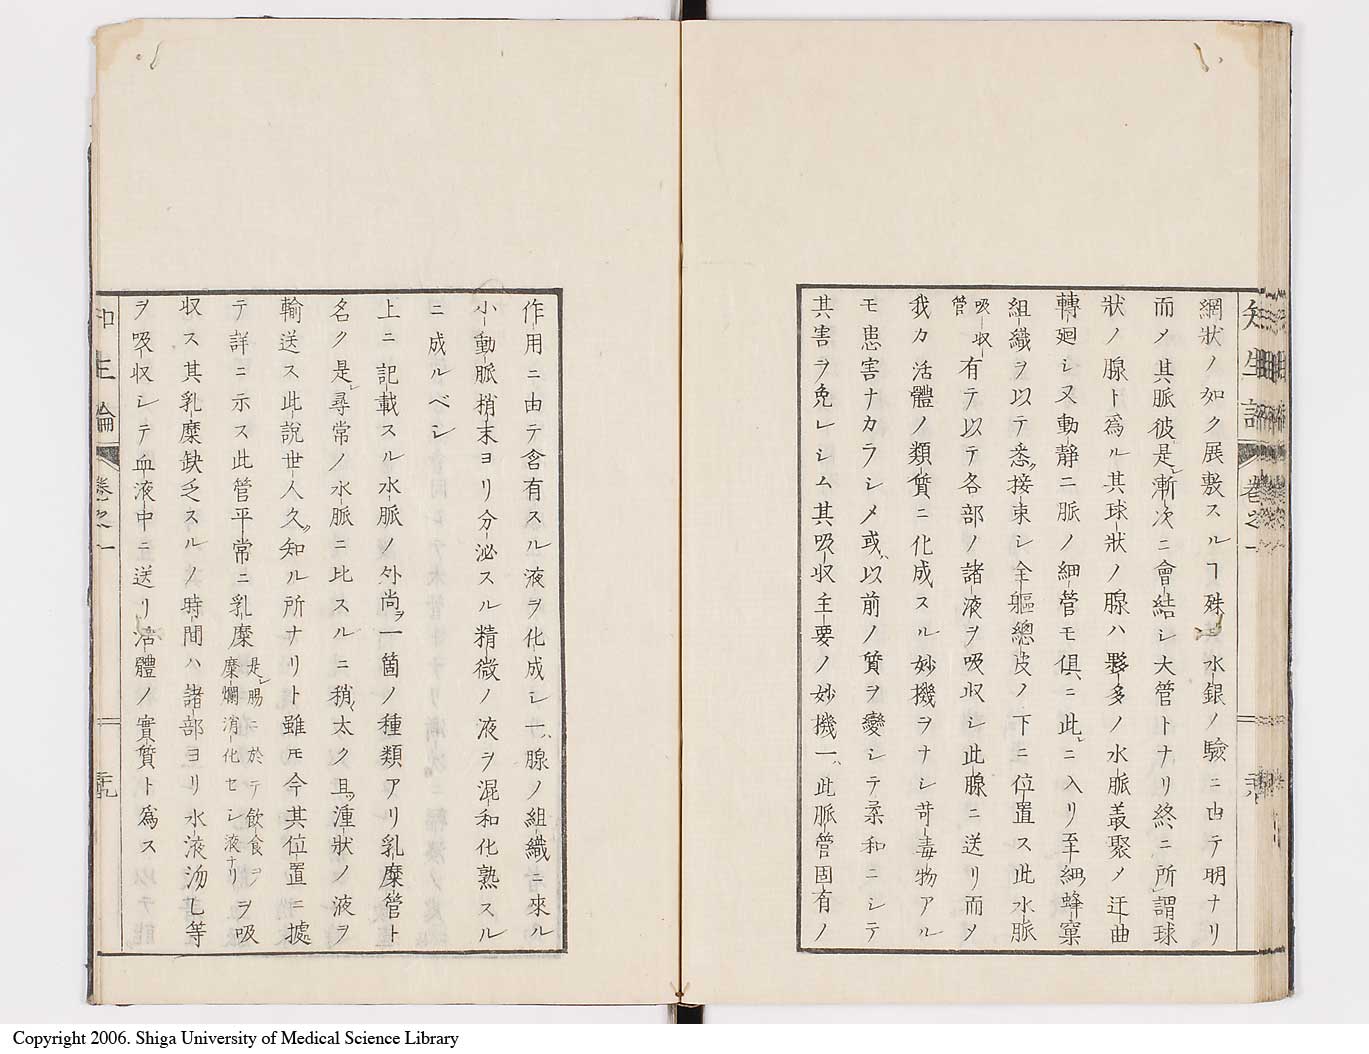 網狀ノ如ク展敷スルヿ殊ニ水銀ノ驗ニ由テ明ナリ
而〆其脈彼是漸次ニ會結シ大管トナリ終ニ所謂球
狀ノ腺ト爲ル其球狀ノ腺ハ夥多ノ水脈叢聚〆迂曲
轉廻シ又動靜二脈ノ細管モ俱ニ此ニ入リ至細蜂窠
組織ヲ以テ悉ク接束シ全軀總皮ノ下ニ位置ス此水脈
吸収
管
有テ以テ各部ノ諸液ヲ吸収シ此腺ニ送リ而〆
我カ活體ノ類質ニ化成スル妙機ヲナシ苛毒物アル
モ患害ナカラシメ或ハ以前ノ質ヲ變シテ柔和ニシテ
其害ヲ免レシム其吸収主要ノ妙機一ハ此脈管固有ノ
知生論 卷之一 二十八
作用ニ由テ含有スル液ヲ化成シ一ハ腺ノ組織ニ來ル
小動脈梢末ヨリ分泌スル精微ノ液ヲ混和化熟スル
ニ成ルベシ
上ニ記載スル水脈ノ外尚ヲ一箇ノ種類アリ乳糜管ト
名ク是レ尋常ノ水脈ニ比スルニ稍太ク且湩狀ノ液ヲ
輸送ス此說世人久ク知ル所ナリト雖モ今其位置ニ據
テ詳ニ示ス此管平常ニ乳糜
是レ腸ニ於テ飲食ヲ
糜爛消化セシ液ナリ
ヲ吸
収ス其乳糜缺乏スルノ時間ハ諸部ヨリ水液汤乙等
ヲ吸収シテ血液中ニ送リ活體ノ實質ト爲ス
知生論 卷之一 二十九
Copyright 2006. Shiga University of Medical Science Library